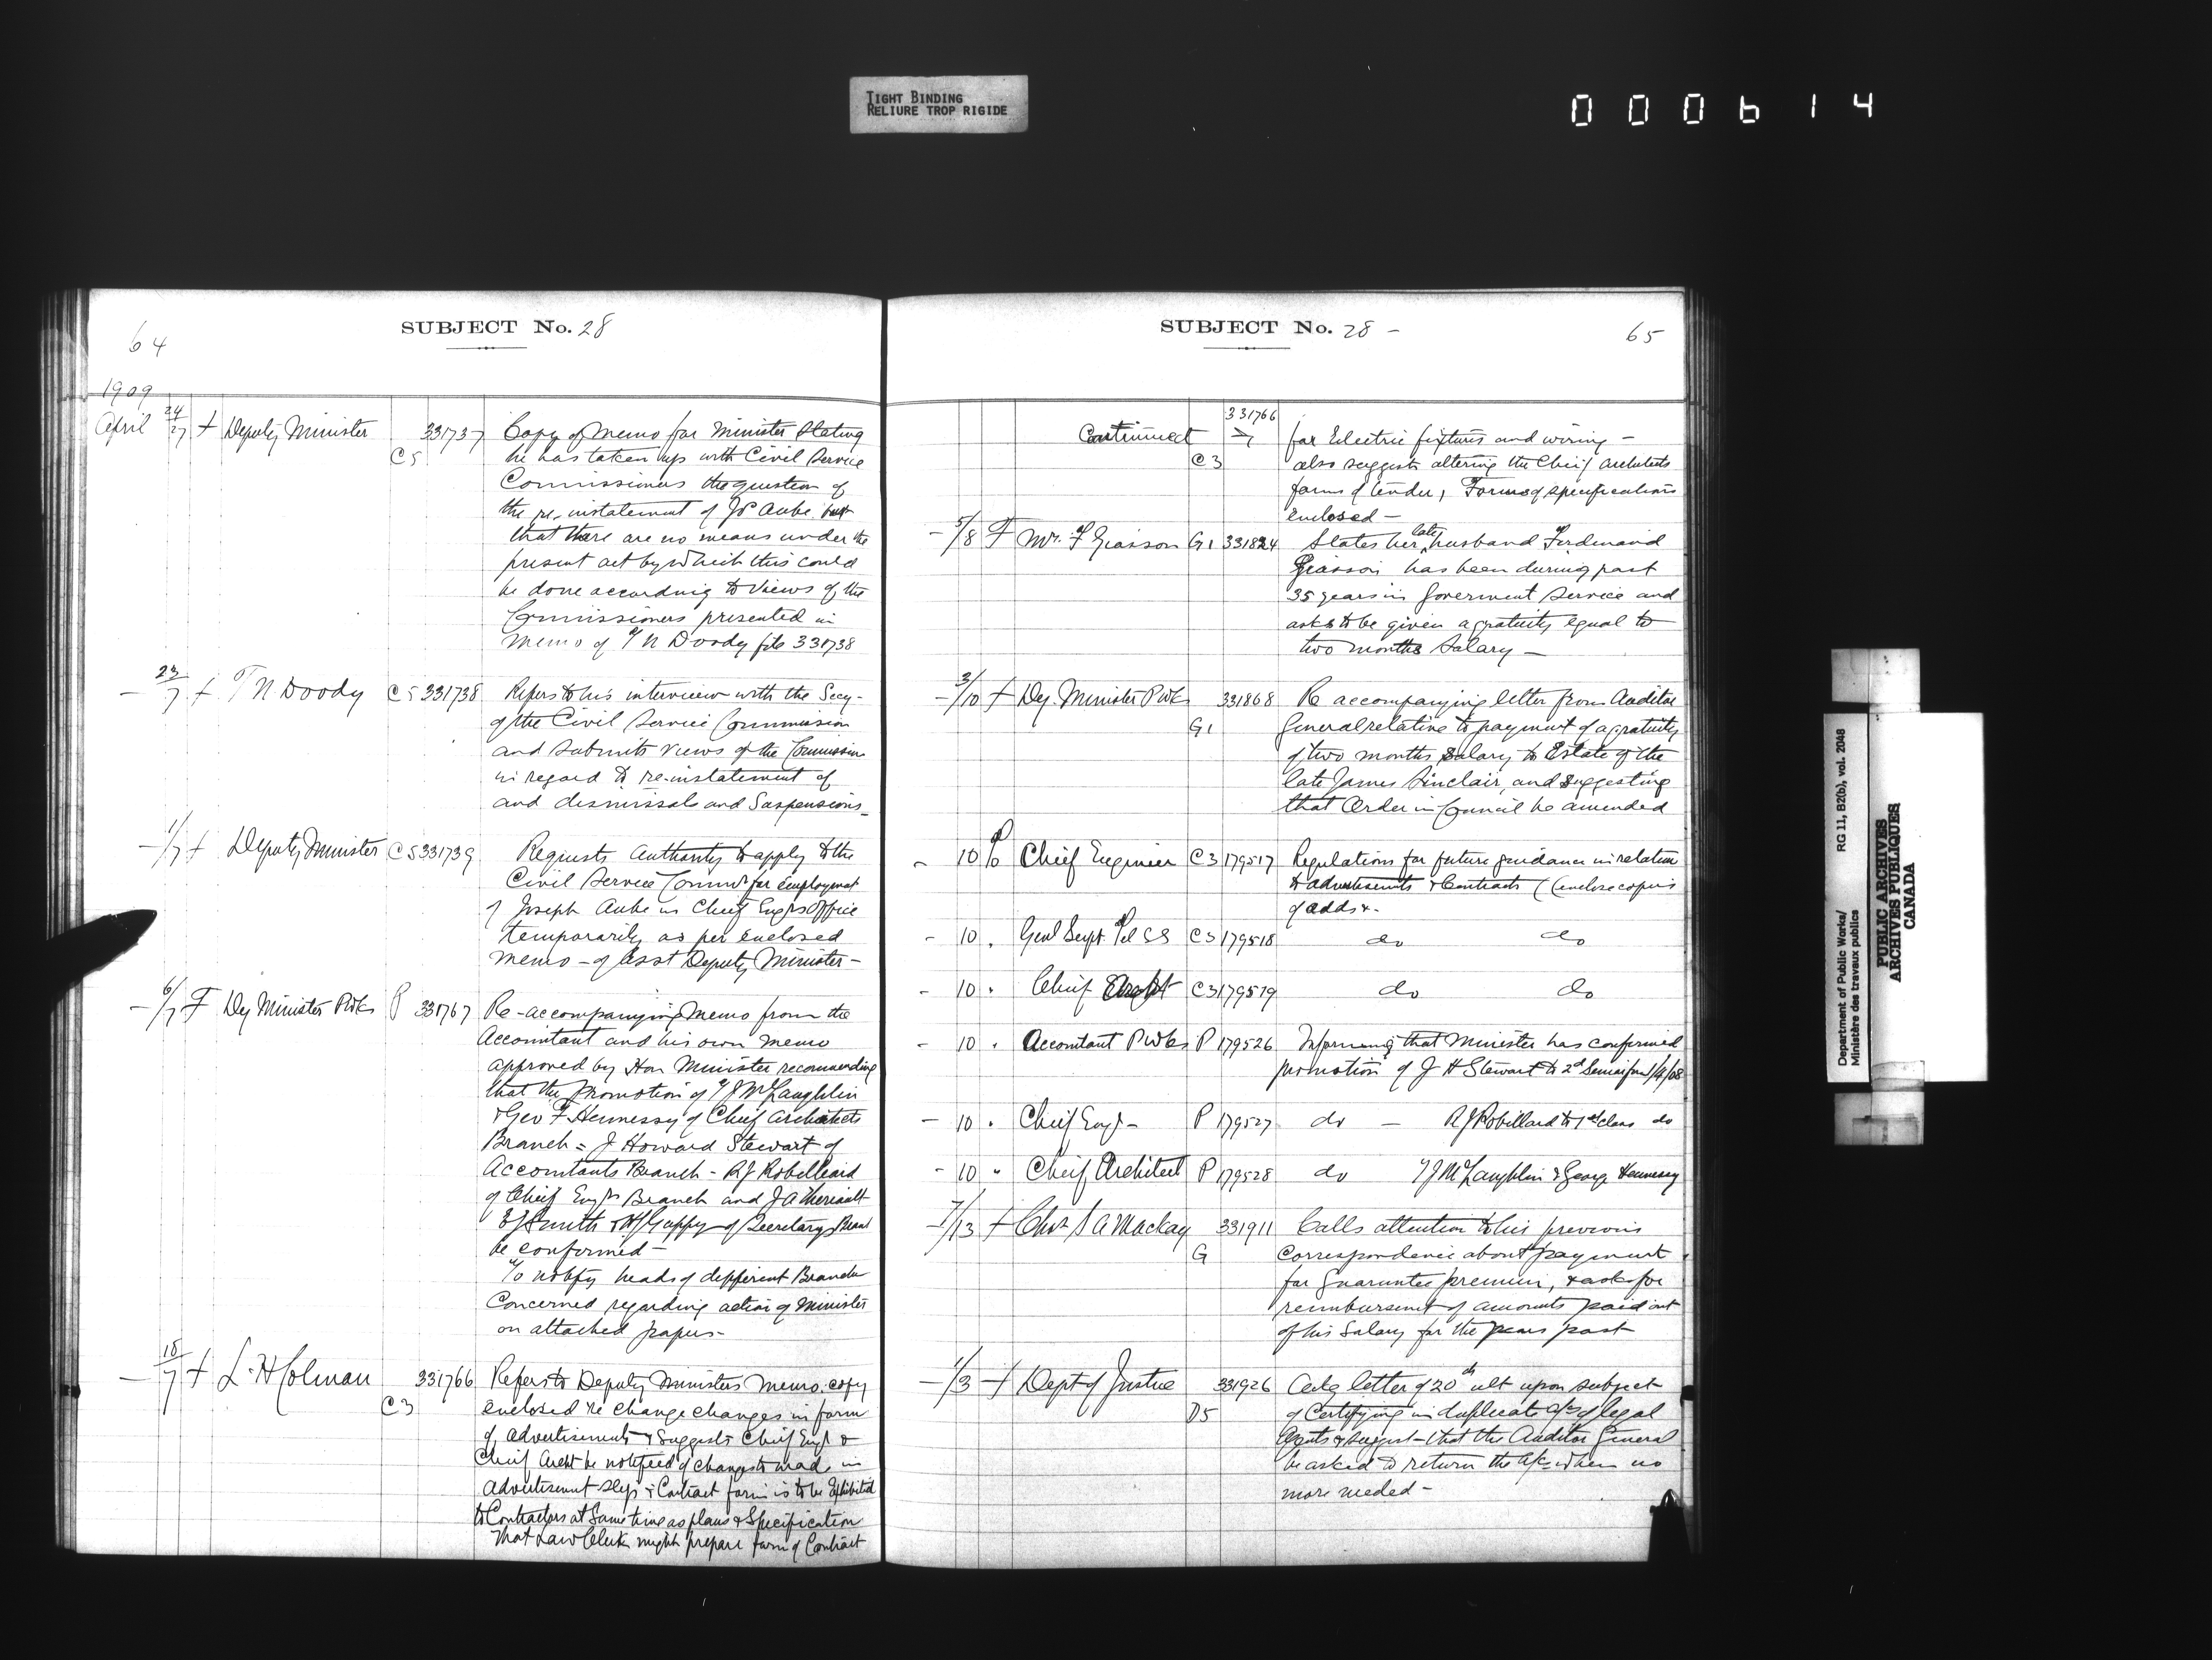 TIGHT BINDING
RELIURE TROP RIGIDE
000614
64
SUBJECT No. 28
1909
April 24/27 + Deputy Minister C5 331737 Copy of Memo for Minister Stating
he has taken up with Civil Service
Commissioners the question of
the re-instatement of Jos Aube but
that there are no means under the
present act by which this could
be done according to views of the
Commissioners presented in
memo of T N Doody file 331738
— 23/7 + T N Doody C5 331738 Refers to his interview with the Secy-
of the Civil Service Commission
and submits views of the Commission
in regard to re-instatement of
and dismissals and Suspensions-
— 1/7 + Deputy Minister C5 331739 Requests Authority to apply to the
Civil Service Commrs for employment
of Joseph Aube in Chief Engrs Office
temporarily as per enclosed
memo - of Asst Deputy Minister -
— 6/7 F Dy Minister PWks P 331767 Re-accompanying Memo from the
Accountant and his own memo
approved by Hon Minister recommending
that the promotion of T J McLaughlin
& Geo F Hennessy of Chief Architects
Branch = J Howard Stewart of
Accountants Branch - R J Robilliard
of Chief Engrs Branch and J A Theriault
E J Smith & H J Guppy of Secretarys Bran
be confirmed -
To notify heads of different Branche
Concerned regarding action of Minister
on attached papers-
— 18/7 + L. H Colman C3 331766 Refers to Deputy Ministers Memo. copy
enclosed re change changes in form
of Advertisements & suggests Chief Engr &
Chief Archt be notified of changes to made in
Advertisement slips & Contract form is to be Exhibited
to Contractors at Same time as plans & Specification
that Law Clerk might prepare form of Contract
SUBJECT No. 28 -
65
Continued C3 331766 for Electric fixtures and wiring -
also suggests altering the Chief architects
forms of tender, Forms of specifications
enclosed -
— 5/8 F Mrs F Giasson G1 331824 States her late husband Ferdinand
Giasson has been during past
35 years in Goverment Service and
asks to be given a gratuity equal to
two months Salary -
— 3/10 + Dy. Minister PWks G1 331868 Re accompanying letter from Auditor
General relative to payment of a gratuity
of two months Salary to Estate of the
late James Sinclair, and suggesting
that Order in Council be amended
- 10 Chief Engineer C3 179517 Regulations for future guidance in relation
to advertisements & Contracts (enclose copies
of adds &.
- 10 . Genl Supt. Tel SS C3 179518 do do
- 10 . Chief Archt C3 179519 do do
- 10 . Accountant PWks P 179526 Informing that Minister has confirmed
promotion of J H Stewart to 2d from 1/4/08
- 10 . Chief Engr - P 179527 do — R J Robillard to 1st class do
- 10 " Chief Architect P 179528 do T J McLaughlin & George Hennessy
— 7/13 + Chas S A Mackay G 331911 Calls attention to his previous
correspondence about payment
for Guaruntee premium, & asks for
reimbursement of amounts paid out
of his Salary for the years past
— 1/3 + Dept of Justice D5 331926 Ackg letter of 20th ult upon subject
of Certifying in duplicate a/cs of legal
Agents & suggest - that the Auditor General
be asked to return the a/cs when no
more needed -
Department of Public Works/
Ministère des travaux publics
RG 11, B2(b), vol. 2048
PUBLIC ARCHIVES
ARCHIVES PUBLIQUES
CANADA